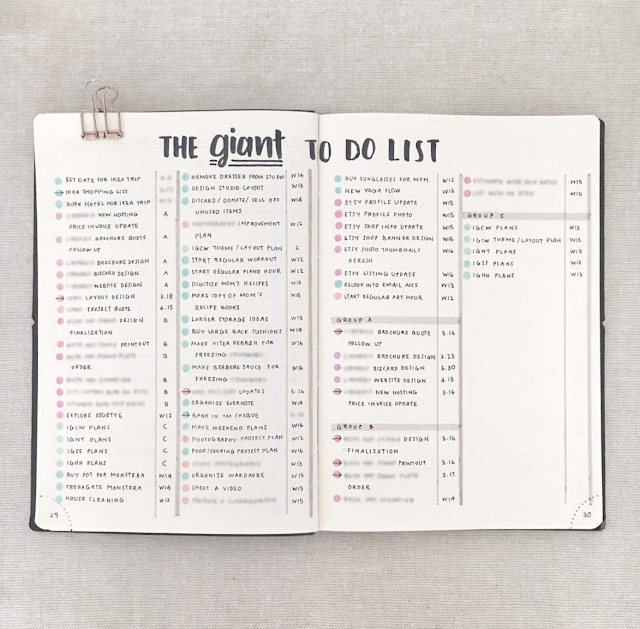 THE giant TO DO LIST
SET DATE FOR IKEA TRIP
IKEA SHOPPING LIST
BOOK HOTEL FOR IKEA TRIP
NEW HOSTING A
PRICE INVOICE UPDATE
BROCHURE QUOTE A
FOLLOW UP
BROCHURE DESIGN A
BIZCARD DESIGN A
WEBSITE DESIGN A
LAYOUT DESIGN 3.18
PROJECT QUOTE 4.15
DESIGN B
FINALIZATION
PRINTOUT B
B
ORDER
B
B
B
EXPLORE SOCIETY6 W12
IGCW PLANS C
IGNT PLANS C
IGSS PLANS C
IGHH PLANS C
BUY POT FOR MONSTERA W14
PROPAGATE MONSTERA W14
HOUSE CLEANING W13
29
REMOVE DRESSER FROM STUDIO W14
DESIGN STUDIO LAYOUT W13
DISCARD/DONATE/SELL OFF W14
UNUSED ITEMS
IMPROVEMENT W12
PLAN
IGCW THEME/LAYOUT PLAN C
START REGULAR WORKOUT W12
START REGULAR PIANO HOUR W12
DIGITIZE MOM'S RECIPES W13
MAKE COPY OF MOM'S W15
RECIPE BOOKS
LARGER STORAGE IDEAS W13
BUY LARGE BACK CUSHIONS W14
MAKE HITER KEBBEH FOR W16
FREEZING
MAKE BERBERE SAUCE FOR W16
FREEZING
UPDATES 3.16
ORGANIZE EVERNOTE W14
BANK IN TM CHEQUE
MAKE WEEKEND PLANS W16
PHOTOGRAPHY PROJECT PLAN W12
FOOD/COOKING PROJECT PLAN W12
W13
ORGANIZE WARDROBE W15
SHOOT A VIDEO W15
W15
BUY SUNGLASSES FOR MOM W12
NEW YOGA FLOW W16
ETSY PROFILE UPDATE W15
ETSY PROFILE PHOTO W15
ETSY SHOP INFO UPDATE W15
ETSY SHOP BANNER DESIGN W15
ETSY PHOTO THUMBNAILS W16
REHASH
ETSY LISTING UPDATE W16
RELOOK INTO EMAIL ACCS W13
START REGULAR ART HOUR W12
GROUP A
BROCHURE QUOTE 3.16
FOLLOW UP
BROCHURE DESIGN 3.23
BIZCARD DESIGN 3.30
WEBSITE DESIGN 4.13
NEW HOSTING 3.16
PRICE INVOICE UPDATE
GROUP B
DESIGN 3.16
FINALIZATION
PRINTOUT 3.16
3.17
ORDER
W14
W15
W15
GROUP C
IGCW PLANS W13
IGCW THEME/LAYOUT PLAN W13
IGNT PLANS W13
IGSS PLANS W13
IGHH PLANS W13
30